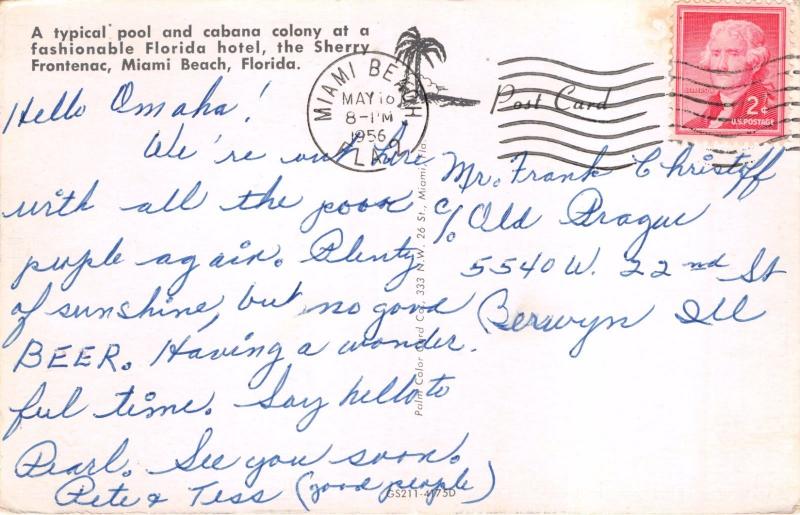 A typical pool and cabana colony at a
fashionable Florida hotel, the Sherry
Frontenac, Miami Beach, Florida.
MIAMI BEACH
MAY 16
8-PM
1956
FLA.
Post Card
2¢
U.S. POSTAGE
Hello Omaha!
We're out here
with all the poor
people again. Plenty
of sunshine, but no good
BEER. Having a wonder-
ful time. Say hello to
Pearl. See you soon.
Pete & Tess (good people)
Mr. Frank Christoff
c/o Old Prague
5540 W. 22nd St
Berwyn Ill
Palm Color Card Co., 333 N.W. 26 St., Miami, Fla.
GS211-4175D